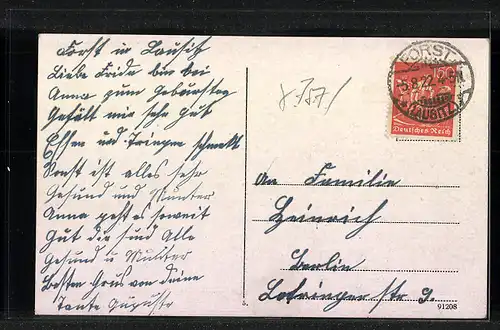 Forst in Lausitz
Liebe Fride bin bei
Anna zum Geburtstag
Gefällt mir sehr gut
Essen und Tringen schmekt
Sonst ist alles sehr
Gesund und Munter
Anna geht es soweit
Gut die sind Alle
Gesund u Munter
Besten Grus von deine
Tante Auguste
FORST
(LAUSITZ)
150
Deutsches Reich
An Familie
Heinrich
Berlin
Lotringer str 9.
91208